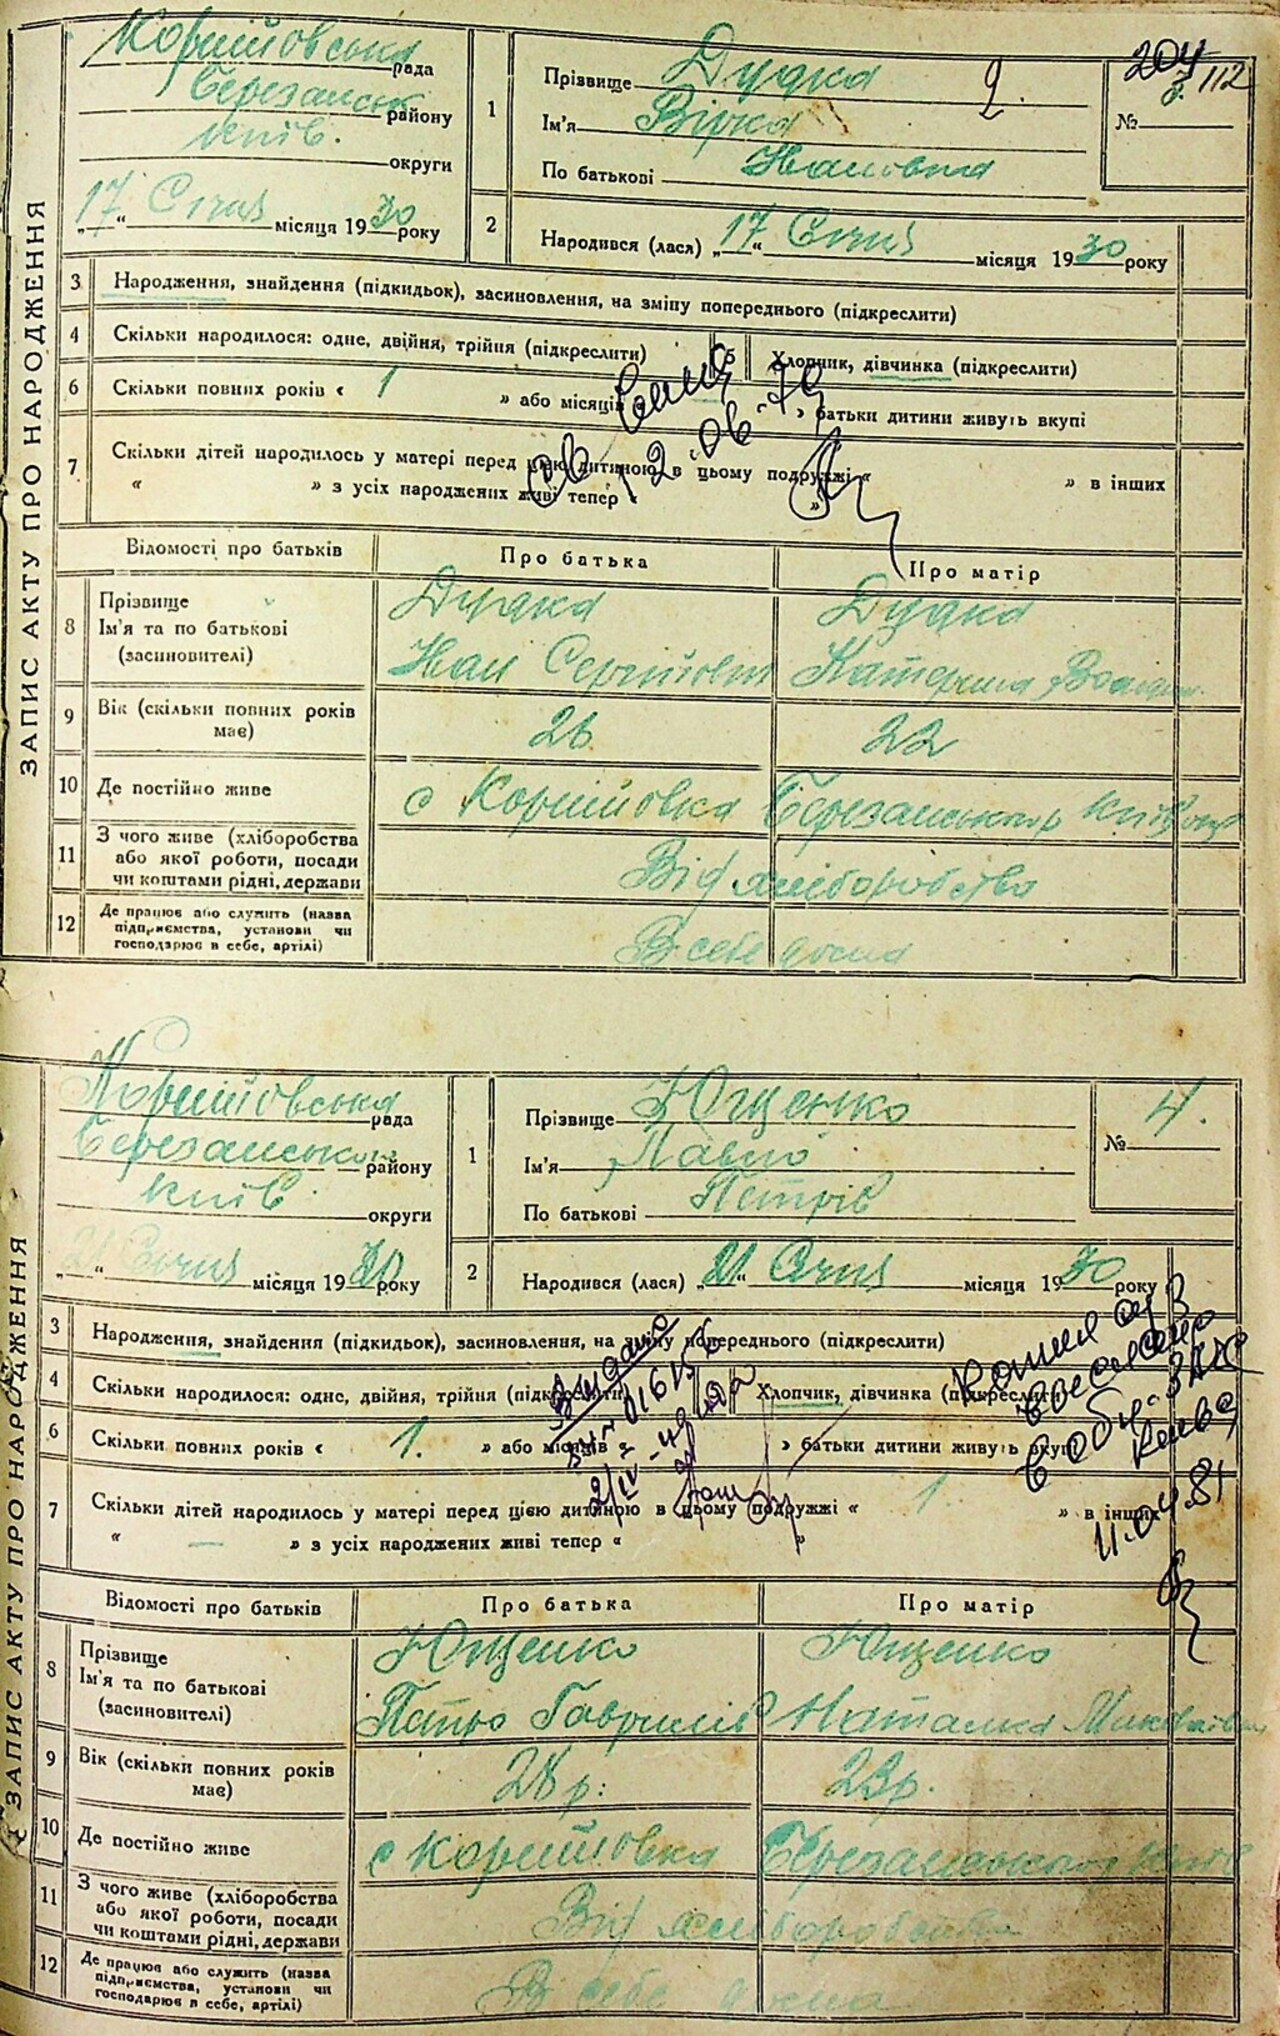 ЗАПИС АКТУ ПРО НАРОДЖЕННЯ
Корніївська рада
Березанськ району
Київ. округи
„17“ Січня місяця 1930 року
1
Прізвище Дудка
Ім'я Вірка
По батькові Івановна
204
112
№ 3.
2
Народився (лася) „17“ Січня місяця 1930 року
3 Народження, знайдення (підкидьок), засиновлення, на зміну попереднього (підкреслити)
4 Скільки народилося: одне, двійня, трійня (підкреслити)
5 Хлопчик, дівчинка (підкреслити)
6 Скільки повних років « 1 » або місяців « — » батьки дитини живуть вкупі
7 Скільки дітей народилось у матері перед цією дитиною в цьому подружжі « » в інших
« » з усіх народжених живі тепер « »
Відомості про батьків Про батька Про матір
8 Прізвище
Ім'я та по батькові
(засиновителі)
Дудка
Іван Сергійович
Дудка
Катерина
9 Вік (скільки повних років має) 26 22
10 Де постійно живе с Корніївка Березанського р
11 З чого живе (хліборобства або якої роботи, посади чи коштами рідні, держави
Від хліборобства
12 Де працює або служить (назва підприємства, установи чи господарює в себе, артілі)
В себе дома
ЗАПИС АКТУ ПРО НАРОДЖЕННЯ
Корніївська рада
Березанськ району
Київ. округи
„21“ Січня місяця 1930 року
1
Прізвище Ющенко
Ім'я Павло
По батькові Петрів
№ 4.
2
Народився (лася) „21“ Січня місяця 1930 року
3 Народження, знайдення (підкидьок), засиновлення, на зміну попереднього (підкреслити)
4 Скільки народилося: одне, двійня, трійня (підкреслити)
Хлопчик, дівчинка (підкреслити)
6 Скільки повних років « 1. » або місяців « » батьки дитини живуть вкупі
7 Скільки дітей народилось у матері перед цією дитиною в цьому подружжі « 1. » в інших
« — » з усіх народжених живі тепер « »
11.04.81
Відомості про батьків Про батька Про матір
8 Прізвище
Ім'я та по батькові
(засиновителі)
Ющенко
Петро Гаврилів
Ющенко
Наталка
9 Вік (скільки повних років має) 28 р. 23 р.
10 Де постійно живе с Корніївка Березанського р
11 З чого живе (хліборобства або якої роботи, посади чи коштами рідні, держави
Від хліборобства
12 Де працює або служить (назва підприємства, установи чи господарює в себе, артілі)
В себе дома